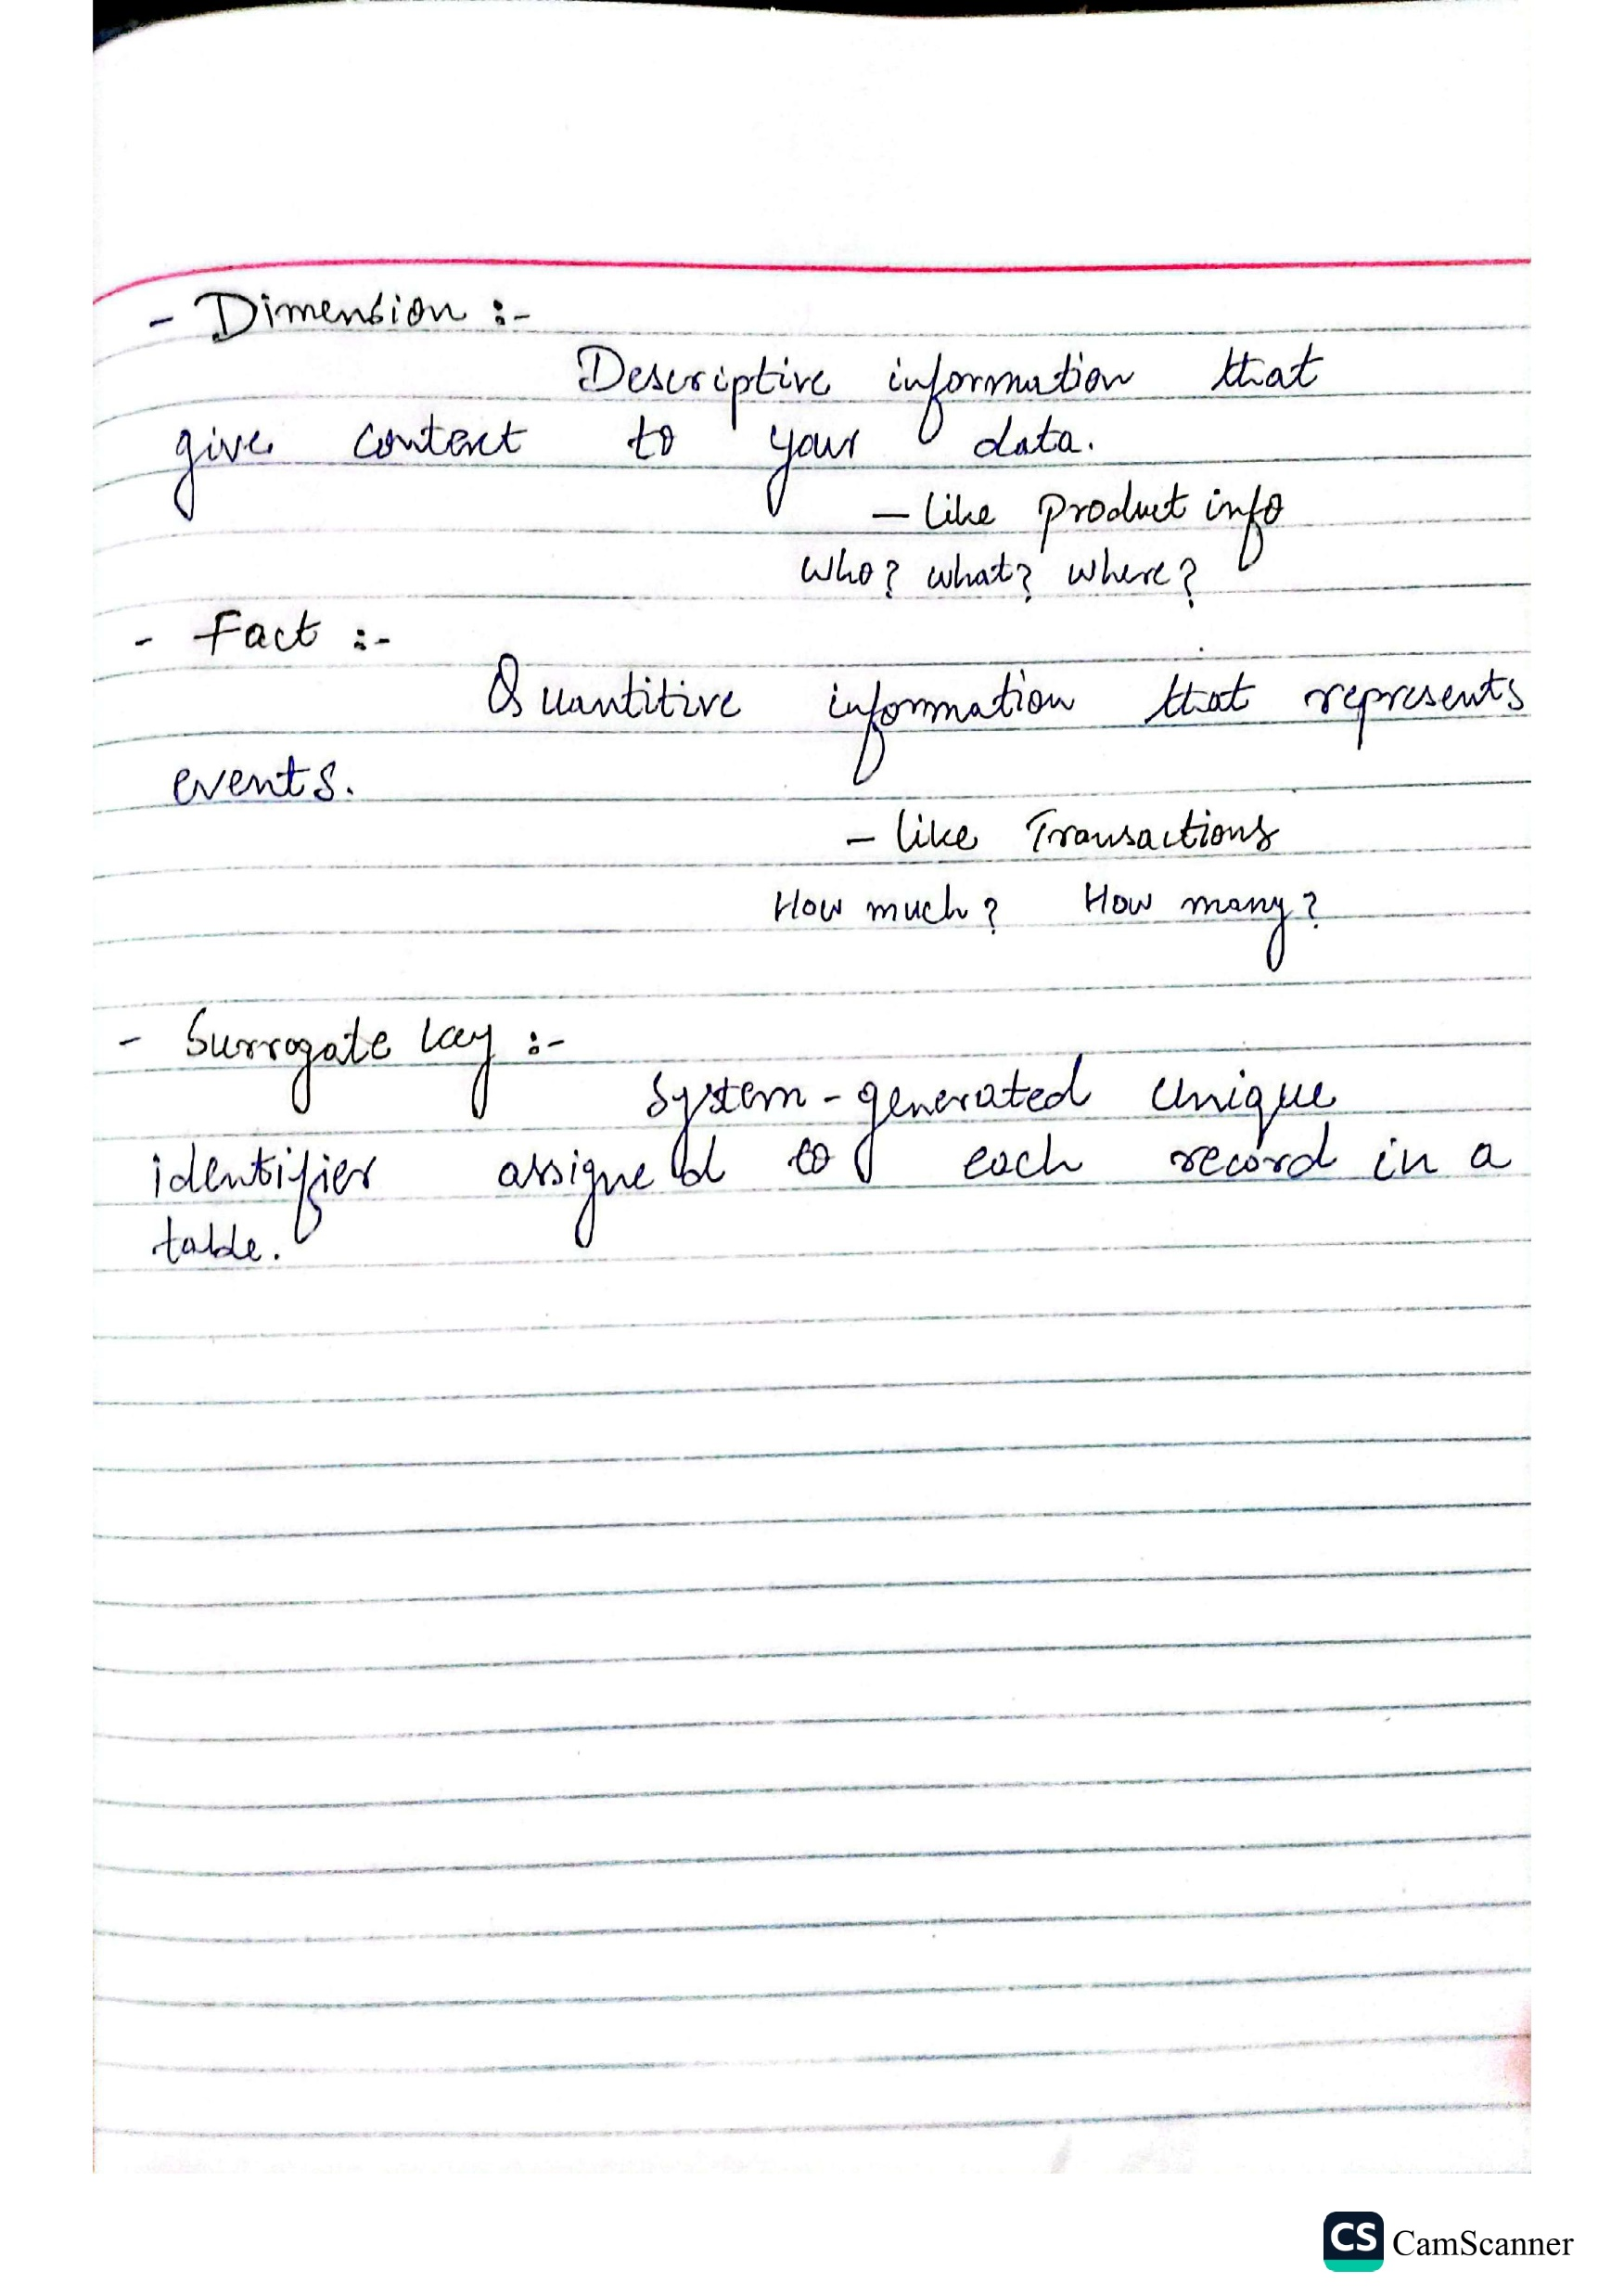 - Dimension :-
Descriptive information that
give context to your data.
- like product info
who? what? where?
- Fact :-
Quantitive information that represents
events.
- like Transactions
How much? How many?
- Surrogate key :-
System-generated unique
identifier assigned to each record in a
table.
CS CamScanner